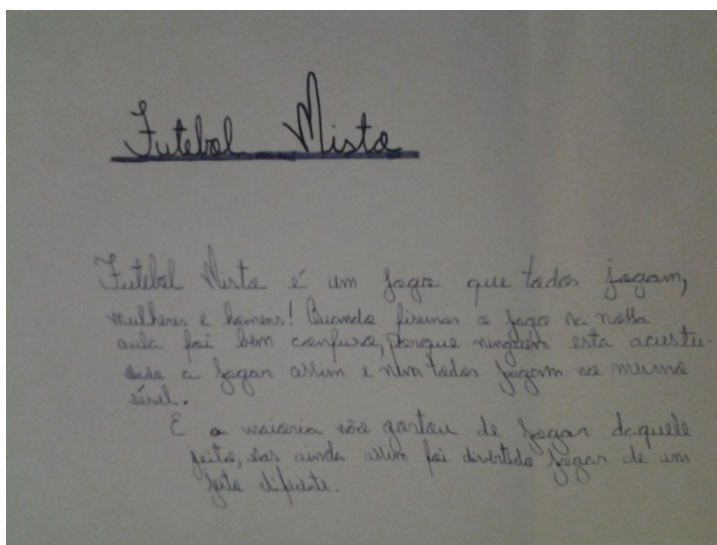 Futebol Misto
Futebol Misto é um jogo que todos jogam,
mulheres e homens! Quando fisemos o jogo na nossa
aula foi bem confuso, porque ninguém esta acustu-
a jogar assim e nem todos jogam no mesmo
E a maioria não gostou de jogar daquele
jeito, mas ainda assim foi divertido jogar de um
jeito diferente.